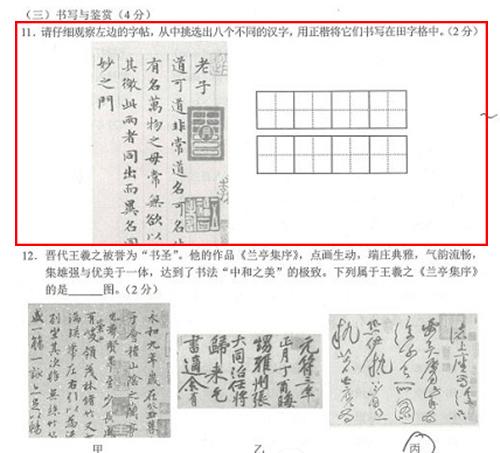 （三）书写与鉴赏（4 分）
11. 请仔细观察左边的字帖，从中挑选出八个不同的汉字，用正楷将它们书写在田字格中。（2 分）
老子
道可道非常道名可名
有名萬物之母常無欲以
其徼此兩者同出而異名同
妙之門
12. 晋代王羲之被誉为“书圣”。他的作品《兰亭集序》，点画生动，端庄典雅，气韵流畅，
集雄强与优美于一体，达到了书法“中和之美”的极致。下列属于王羲之《兰亭集序》
的是______图。（2 分）
永和九年歲在癸丑
于會稽山陰之蘭亭
群賢畢至少長咸
有峻領茂林脩竹又
湍暎帶左右引以為流
列坐其次雖無絲竹
盛一觴一詠亦足以暢
元符三年
正月丁酉晦
甥雅州張
大同治任將
歸來乞
書適余有
甲
乙
丙